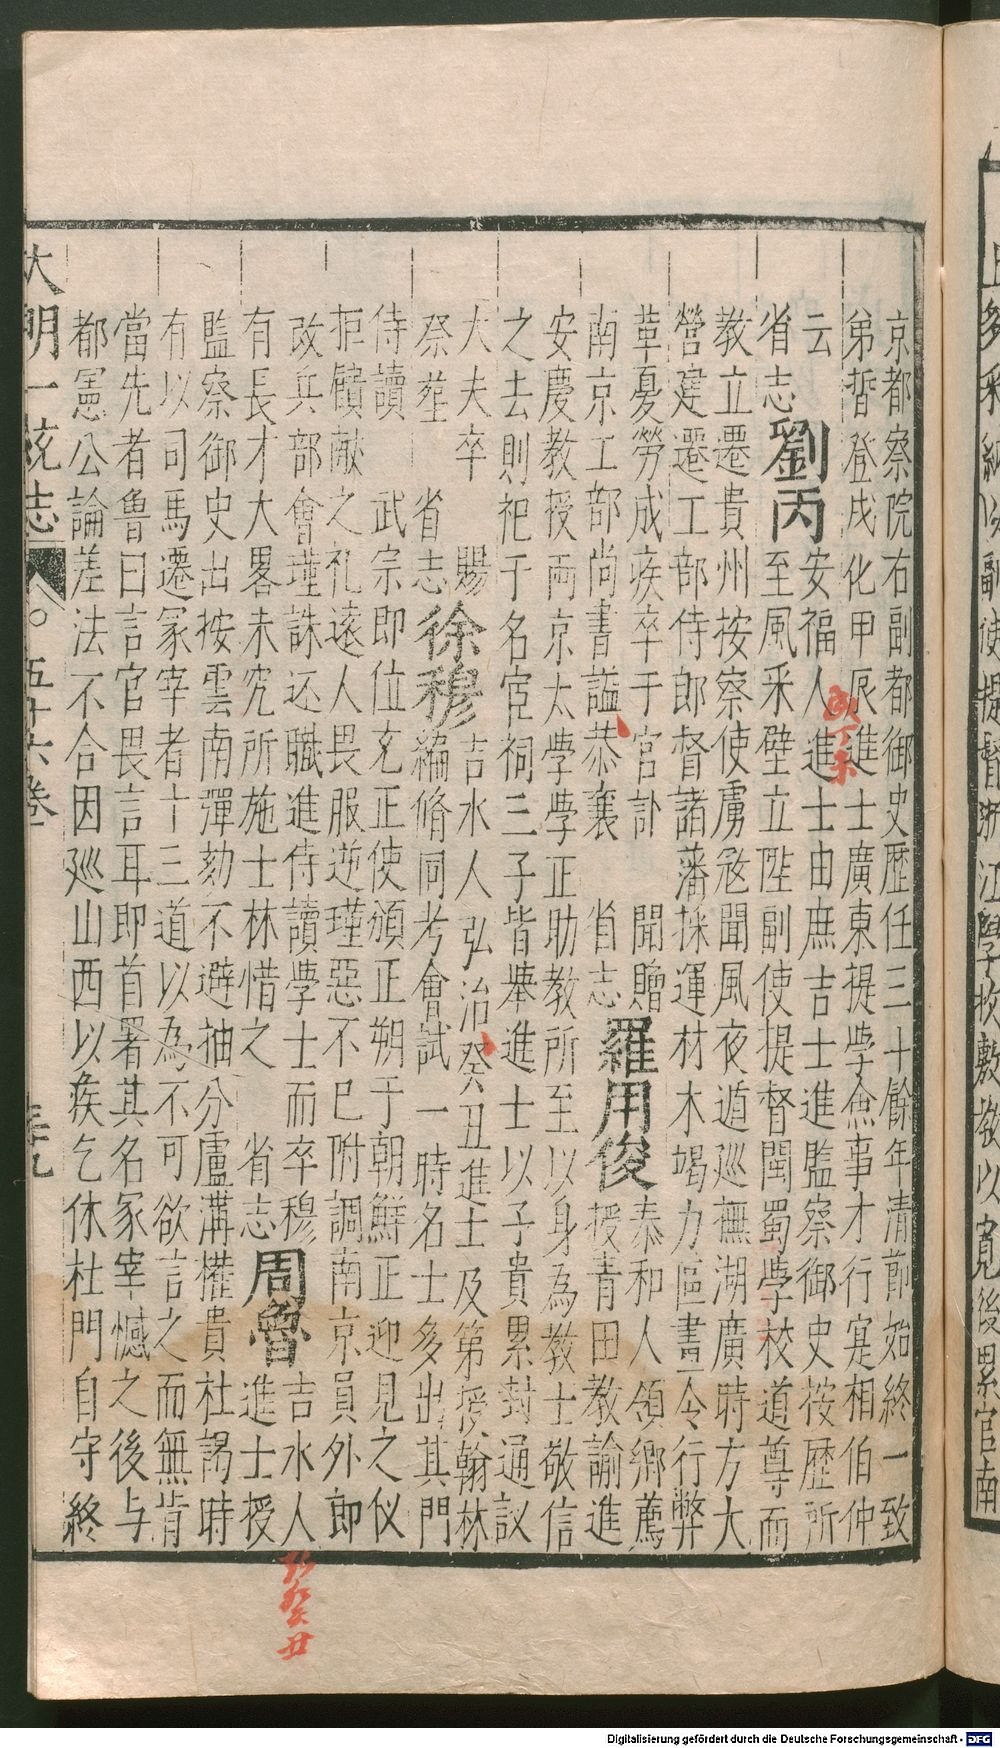 京都察院右副都御史歷任三十餘年清節始終一致
弟晢登成化甲辰進士廣東提學僉事才行寔相伯仲
云　安福人進士由庶吉士進監察御史按歷所
省志劉丙至風采壁立陞副使提督閩蜀學校道尊而
教立遷貴州按察使虜寇聞風夜遁廵撫湖廣時方大
營建遷工部侍郎督諸藩採運材木竭力區畫令行弊
革憂勞成疾卒于官訃　聞贈　泰和人領鄉薦
南京工部尚書謚恭襄　省志羅用俊授青田教諭進
安慶教授兩京太學學正助教所至以身為教士敬信
之去則祀于名宦祠三子皆舉進士以子貴累封通議
大夫卒　賜　吉水人弘治癸丑進士及第授翰林
祭葬　省志徐穆編脩同考會試一時名士多出其門
侍讀　武宗即位充正使頒正朔于朝鮮正迎見之仪
拒饋献之礼遠人畏服逆瑾惡不已附調南京員外郎
改兵部會瑾誅还職進侍讀學士而卒穆　吉水人
有長才大畧未究所施士林惜之　省志周魯進士授
監察御史出按雲南彈劾不避抽分盧溝權貴杜謁時
有以司馬遷冢宰者十三道以為不可欲言之而無肯
當先者魯曰言官畏言耳即首署其名冢宰憾之後与
都憲公論差法不合因廵山西以疾乞休杜門自守終
大明一統志　五十六卷　三十九
成丁未
弘癸丑
上多釆納公副使提督浙江學校敷教以寬後累官南
Digitalisierung gefördert durch die Deutsche Forschungsgemeinschaft - DFG